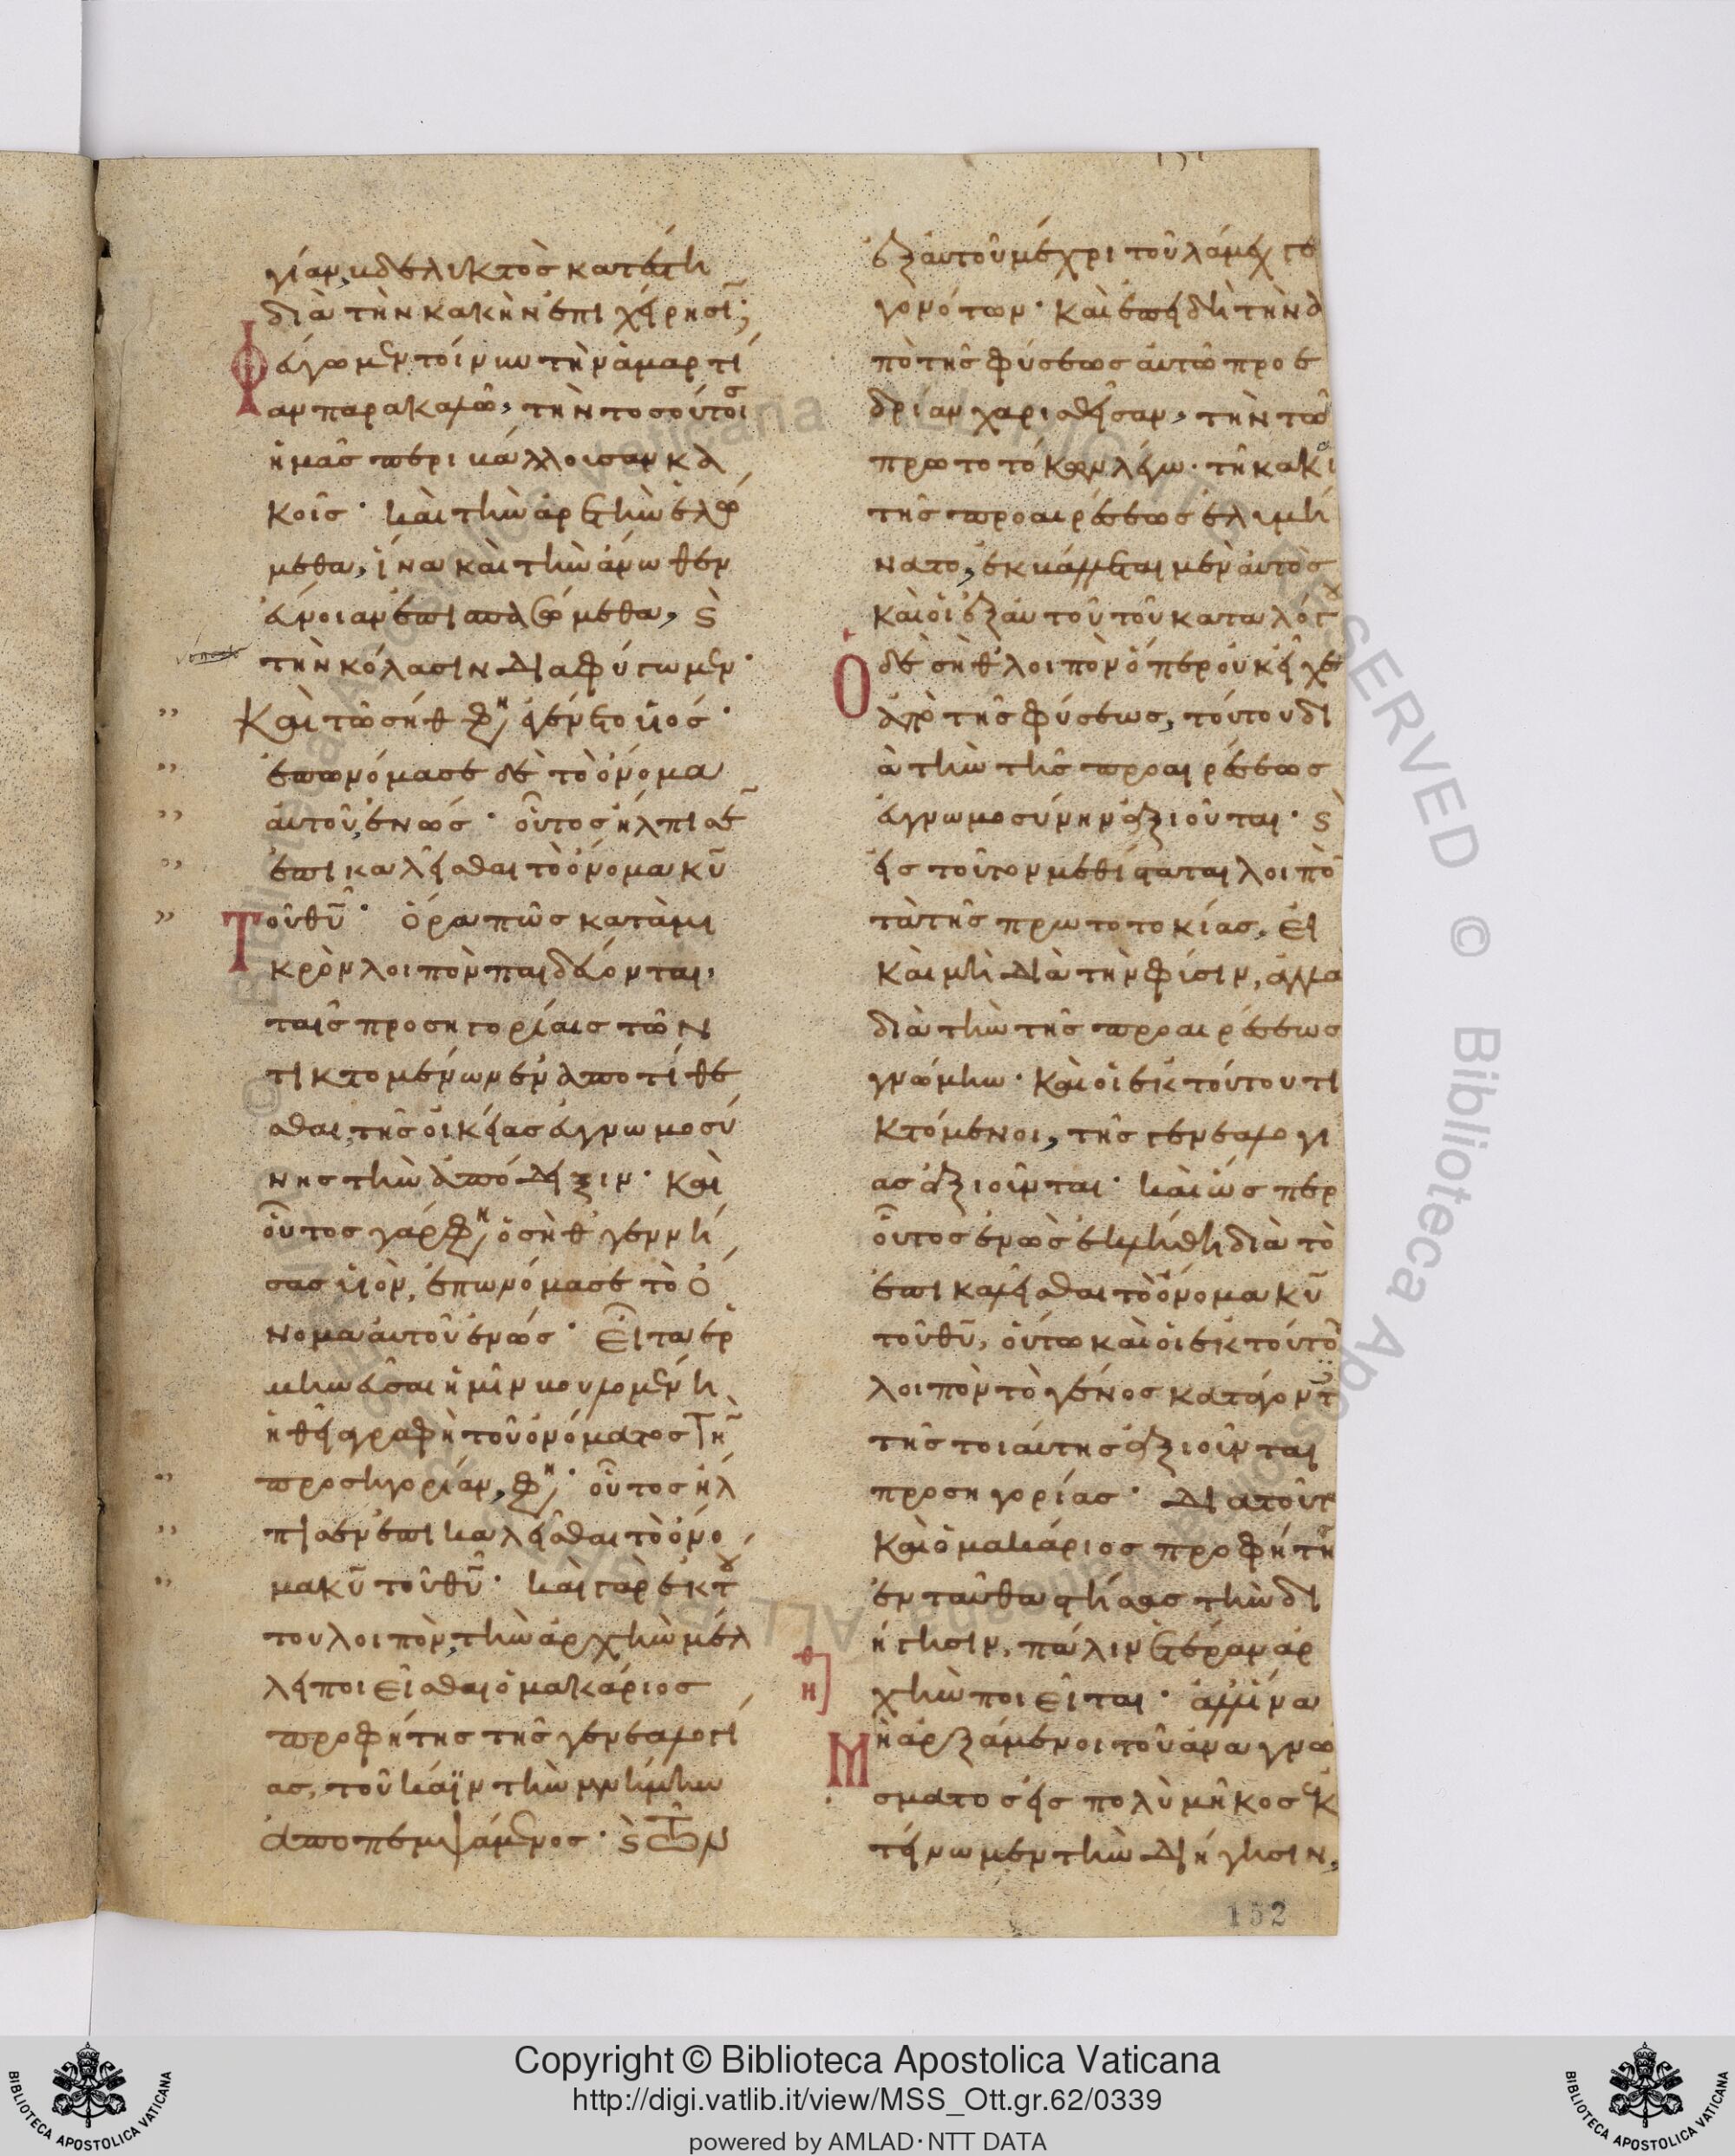 γίαν, βδελυκτὸς κατέστη
διὰ τὴν κακὴν ἐπιχείρησῖ;
Φάγωμεν τοίνυν τὴν ἁμαρτί
αν παρακαλῶ, τὴν τοσούτοις
ἡμᾶς περιβάλλουσαν κα
κοῖς· καὶ τὴν ἀρετὴν ἑλώ
μεθα, ἵνα καὶ τὴν ἄνωθεν
εὔνοιαν ἐπισπασώμεθα, ϛ̀
τὴν κόλασιν διαφύγωμεν·
Καὶ τῶ σὴθ φη ἐγένετο υἱός·
ἐπωνόμασε δὲ τὸ ὄνομα
αὐτοῦ, ἐνώς· οὗτος ἤλπισε̃
ἐπικαλεῖσθαι τὸ ὄνομα κῡ
τοῦ θῡ· Ὅρα πῶς κατὰ μι
κρὸν λοιπὸν παιδεύονται,
ταῖς προσηγορίαις τῶν
τικτομένων ἐναποτίθε
σθαι, τῆς οἰκείας εὐγνωμοσύ
νης τὴν ἀπόδειξιν· Καὶ
οὗτος γάρ φη ὁ σὴθ γεννή
σας υἱὸν, ἐπωνόμασε τὸ ὄ
νομα αὐτοῦ ἐνώς· Εἶτα ἑρ
μηνεῦσαι ἡμῖν βουλομένη
ἡ θεία γραφὴ τοῦ ὀνόματος τη
προσηγορίαν, φη· οὗτος ἤλ
πισεν ἐπικαλεῖσθαι τὸ ὄνο
μα κῡ τοῦ θῡ· καὶ γὰρ ἐκ τού
του λοιπὸν, τὴν ἀρχὴν μέλ
λει ποιεῖσθαι ὁ μακάριος
προφήτης τῆς γενεαλογί
ας, τοῦ κάϊν τὴν μνήμην
ἀποπεμψάμενος· ϛ̀ τῶν
ἐξ αὐτοῦ μέχρι τοῦ λάμεχ γε
γονότων· Καὶ ἐπειδὴ τὴν ἀ
πὸ τῆς φύσεως αὐτῶ προε
δρίαν χαρισθεῖσαν, τὴν τῶ
πρωτοτόκων λέγω· τῆ κακία
τῆς προαιρέσεως ἐλυμή
νατο, ἐκβάλλεται μὲν αὐτὸς
καὶ οἱ ἐξ αὐτοῦ τοῦ καταλόγου
Ὁ δὲ σὴθ λοιπὸν ὅπερ οὐκ εἶχε
ἀπὸ τῆς φύσεως, τούτου δι
ὰ τὴν τῆς προαιρέσεως
εὐγνωμοσύνην ἀξιοῦται· ϛ̀
εἰς τοῦτον μεθίσταται λοιπὸ
τὰ τῆς πρωτοτοκίας, εἰ
καὶ μὴ διὰ τὴν φύσιν, ἀλλὰ
διὰ τὴν τῆς προαιρέσεως
γνώμην· καὶ οἱ ἐκ τούτου τι
κτόμενοι, τῆς γενεαλογί
ας ἀξιοῦνται· καὶ ὥσπερ
οὗτος ἐνὼς ἐκλήθη διὰ τὸ
ἐπικαλεῖσθαι τὸ ὄνομα κῡ
τοῦ θῡ, οὕτω καὶ οἱ ἐκ τούτο
λοιπὸν τὸ γένος κατάγοντ
τῆς τοιαύτης ἀξιοῦνται
προσηγορίας· Διατοῦτ
καὶ ὁ μακάριος προφήτη
ἐνταῦθα στήσας τὴν δι
ήγησιν, πάλιν ἑτέραν ἀρ
χὴν ποιεῖται· ἀλλ' ἵνα
Μὴ ἀρξάμενοι τοῦ ἀναγνώ
σματος εἰς πολὺ μῆκος ἐκ
τείνωμεν τὴν διήγησιν,
152
Copyright © Biblioteca Apostolica Vaticana
http://digi.vatlib.it/view/MSS_Ott.gr.62/0339
powered by AMLAD·NTT DATA